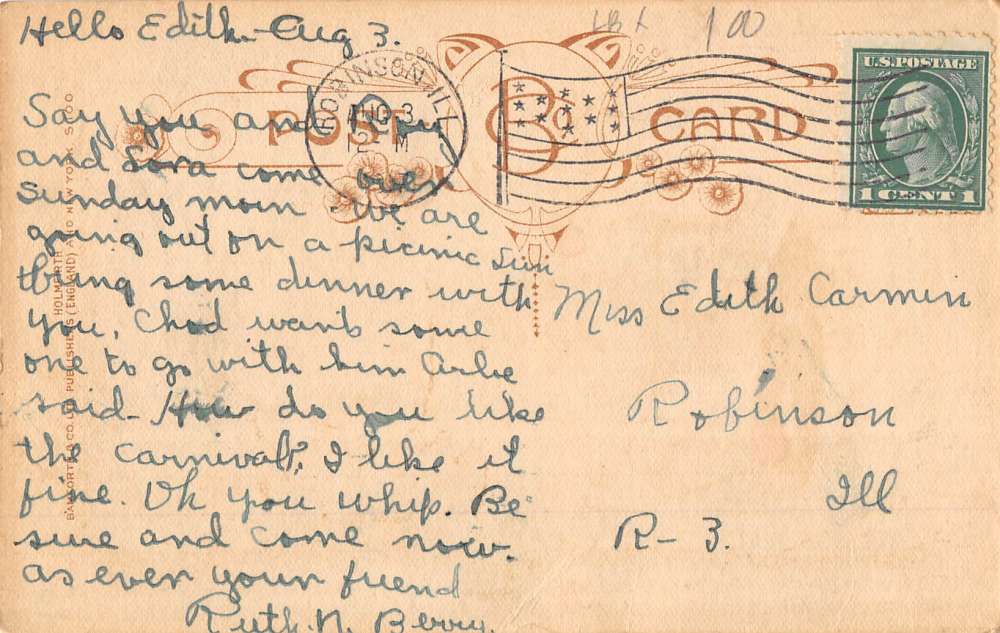 Hello Edith - Aug 3.
Say you and
and Sora come over
Sunday morn - We are
going out on a picinic Sun
bring some dinner with
you, Chod wants some
one to go with him Arlie
said - How do you like
the Carnival?, I like it
fine. Oh you whip. Be
sure and come now.
as ever your friend
Ruth. N. Berry.
POST CARD
B Co
ROBINSON, ILL.
AUG 3
M
1 00
U.S. POSTAGE
1 CENT 1
Miss Edith Carmen
Robinson
Ill
R - 3.
BAMFORTH & CO. LTD PUBLISHERS (ENGLAND) AND NEW YORK
HOLMFIRTH